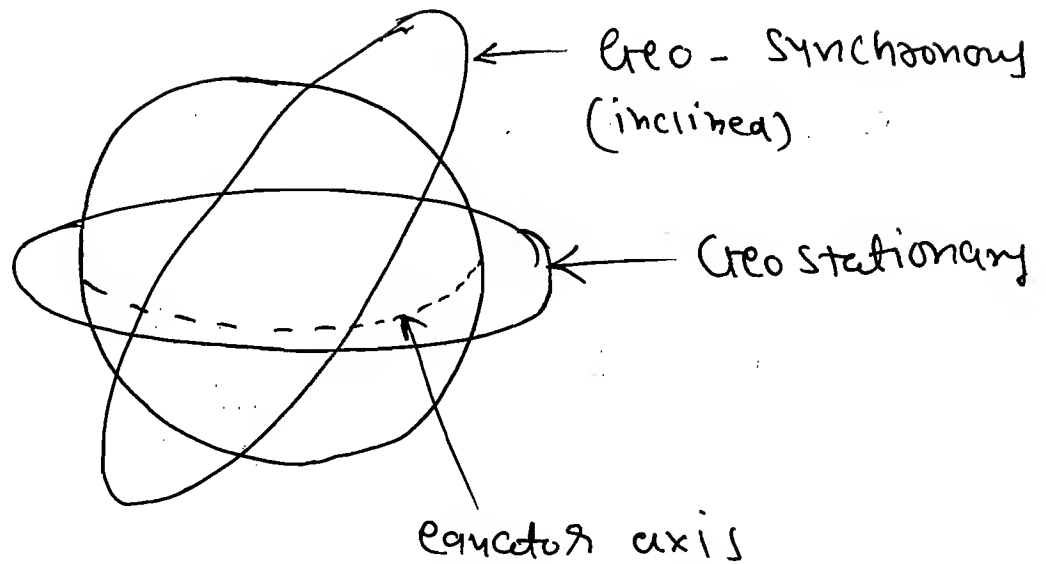 Geo - Synchronous
(inclined)
Geo stationary
equator axis